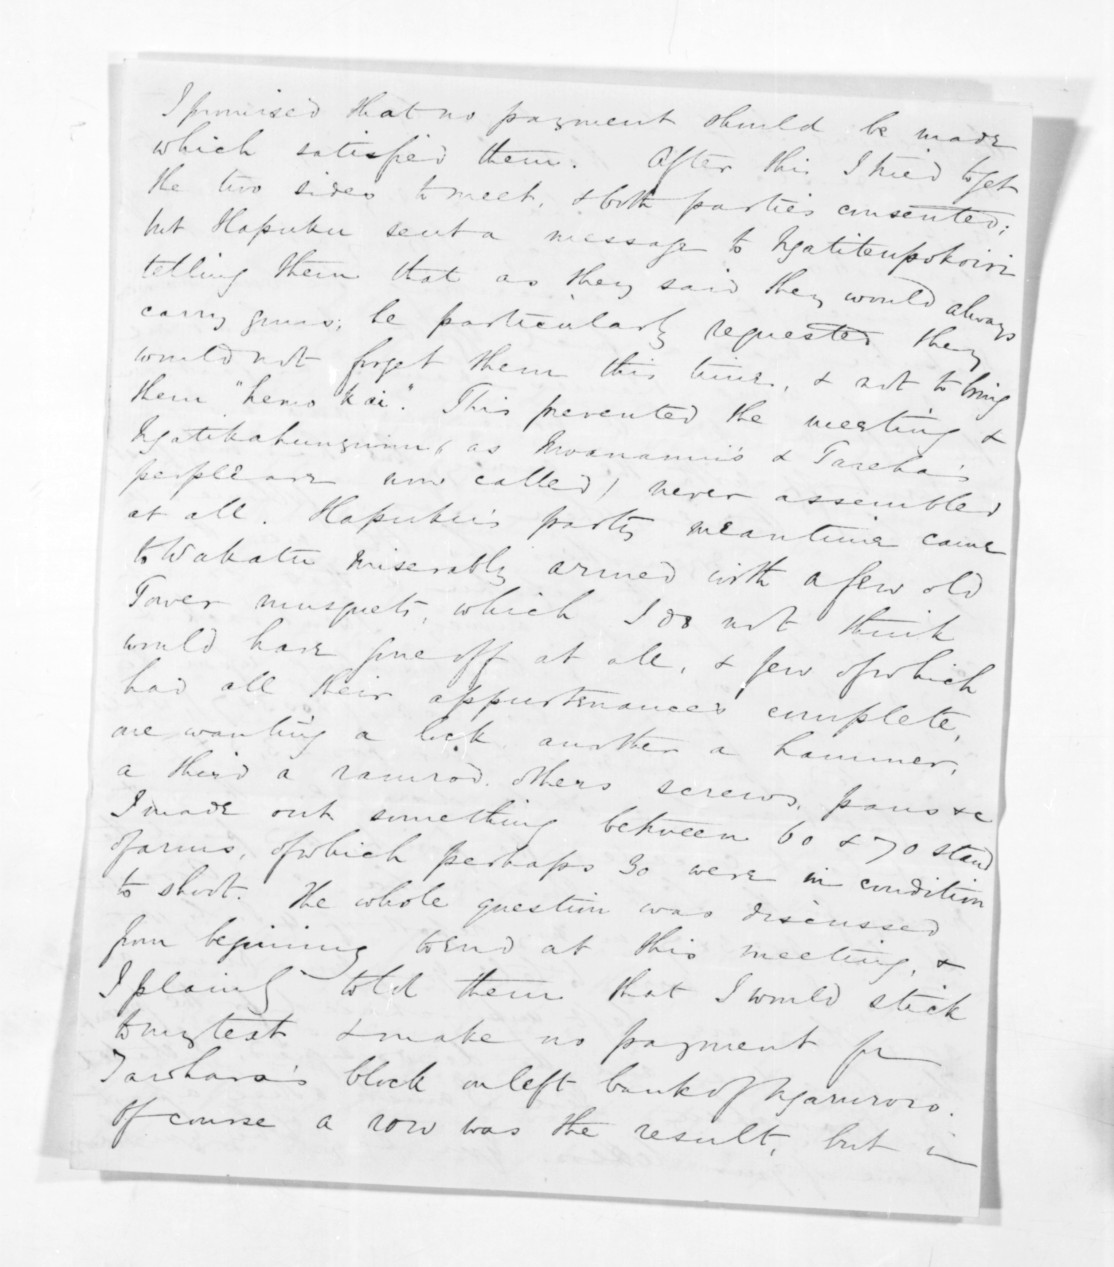 I promised that no payment should be made
which satisfied them. After this I tried to get
the two sides to meet, & both parties consented;
but Hapuku sent a message to Ngatiteupokoiri
telling them that as they said they would always
carry guns, he particularly requested they
would not forget them this time, & not to bring
them "hemo kai". This prevented the meeting &
Ngatikahungunu, (as Moananui's & Tareha's
people are now called) never assembled
at all. Hapuku's party meantime came
to Wakatu miserably armed with a few old
Tower musquets, which I do not think
would have gone off at all, & few of which
had all their appurtenances complete,
one wanting a lock another a hammer,
a third a ramrod. others screws, pans &c
I made out something between 60 & 70 stand
of arms, of which perhaps 30 were in condition
to shoot. The whole question was discussed
from beginning to end at this meeting, &
I plainly told them that I would stick
to my text & make no payment for
Tawhara's block on left bank of Ngaruroro.
Of course a row was the result, but in